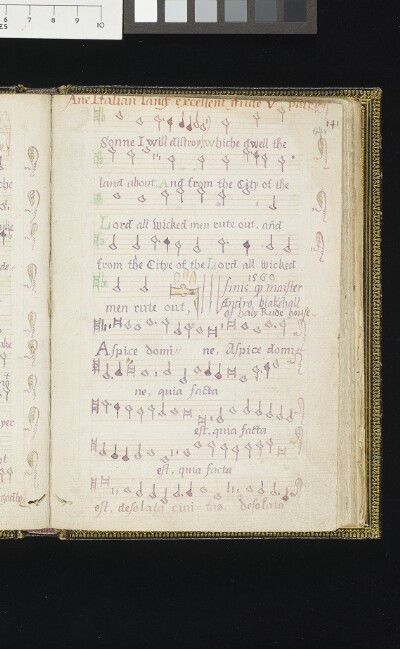 6 7 8 9 10
Ane Italian sang excellent gude V partes
141
Sonne I will distroy whiche dwell the
land about And from the City of the
Lord all wicked men rute out, and
from the Citye of the Lord all wicked
1569
finis qd maister
men rute out,
Andro, blakehall
of haly Rude house
Aspice domi ne, Aspice domi
ne, quia facta
est, quia facta
est, quia facta
est, desolata ciui tas, desolata